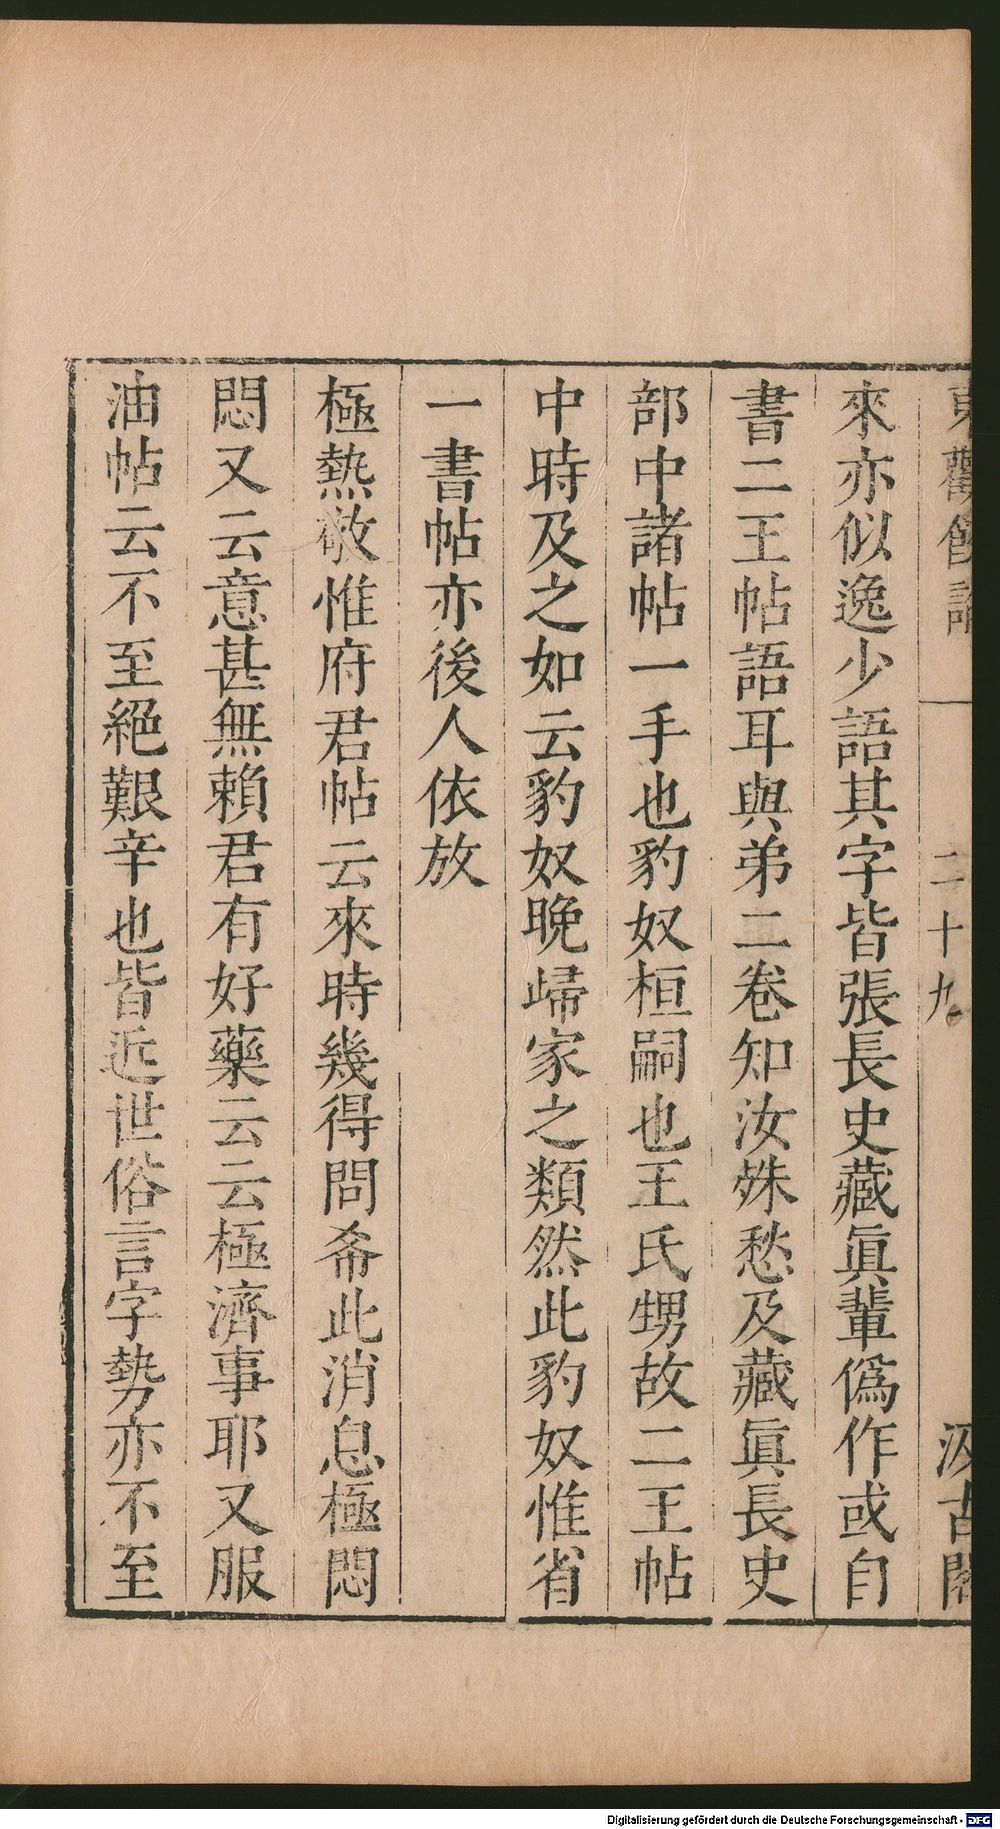 東觀餘論 二十九 汲古閣
來亦似逸少語其字皆張長史藏眞輩僞作或自
書二王帖語耳與弟二卷知汝殊愁及藏眞長史
部中諸帖一手也豹奴桓嗣也王氏甥故二王帖
中時及之如云豹奴晚歸家之類然此豹奴惟省
一書帖亦後人依放
極熱敬惟府君帖云來時幾得問希此消息極悶
悶又云意甚無賴君有好藥云云極濟事耶又服
油帖云不至絕艱辛也皆近世俗言字勢亦不至
Digitalisierung gefördert durch die Deutsche Forschungsgemeinschaft - DFG